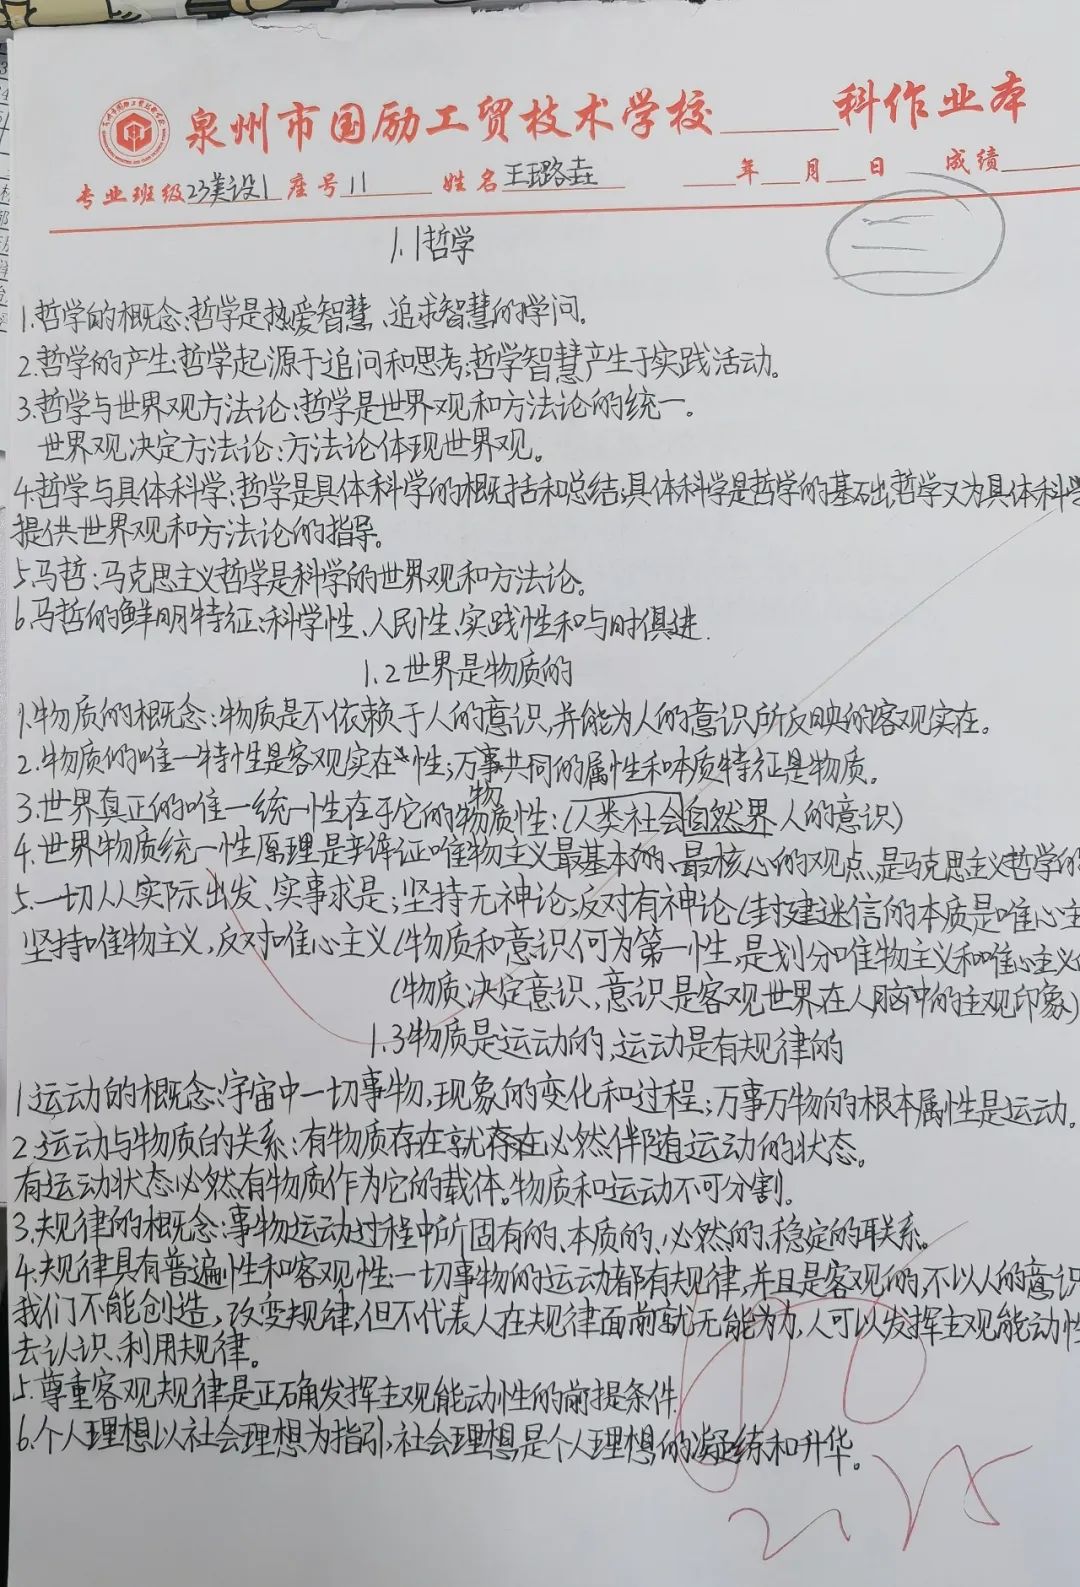 泉州市国励工贸技术学校______科作业本
专业班级23美设1 座号11 姓名王璐垚 __年__月__日 成绩
二
1.1哲学
1.哲学的概念:哲学是热爱智慧、追求智慧的学问。
2.哲学的产生:哲学起源于追问和思考;哲学智慧产生于实践活动。
3.哲学与世界观方法论:哲学是世界观和方法论的统一。
世界观决定方法论;方法论体现世界观。
4.哲学与具体科学:哲学是具体科学的概括和总结;具体科学是哲学的基础,哲学又为具体科学
提供世界观和方法论的指导。
5.马哲:马克思主义哲学是科学的世界观和方法论。
6.马哲的鲜明特征:科学性、人民性、实践性和与时俱进.
1.2世界是物质的
1.物质的概念:物质是不依赖于人的意识,并能为人的意识所反映的客观实在。
2.物质的唯一特性是客观实在性;万事共同的属性和本质特征是物质。
3.世界真正的唯一统一性在于它的物质性:(人类社会 自然界 人的意识)
4.世界物质统一性原理是辩证唯物主义最基本的、最核心的观点,是马克思主义哲学的
5.一切从实际出发、实事求是;坚持无神论,反对有神论(封建迷信的本质是唯心主
坚持唯物主义,反对唯心主义(物质和意识何为第一性,是划分唯物主义和唯心主义
(物质决定意识,意识是客观世界在人脑中的主观印象)
1.3物质是运动的,运动是有规律的
1.运动的概念:宇宙中一切事物,现象的变化和过程;万事万物的根本属性是运动。
2.运动与物质的关系:有物质存在就必然伴随运动的状态。
有运动状态必然有物质作为它的载体。物质和运动不可分割.
3.规律的概念:事物运动过程中所固有的、本质的、必然的、稳定的联系。
4.规律具有普遍性和客观性:一切事物的运动都有规律,并且是客观的,不以人的意识
我们不能创造,改变规律,但不代表人在规律面前就无能为力,人可以发挥主观能动性
去认识、利用规律。
5.尊重客观规律是正确发挥主观能动性的前提条件.
6.个人理想以社会理想为指引,社会理想是个人理想的凝练和升华。